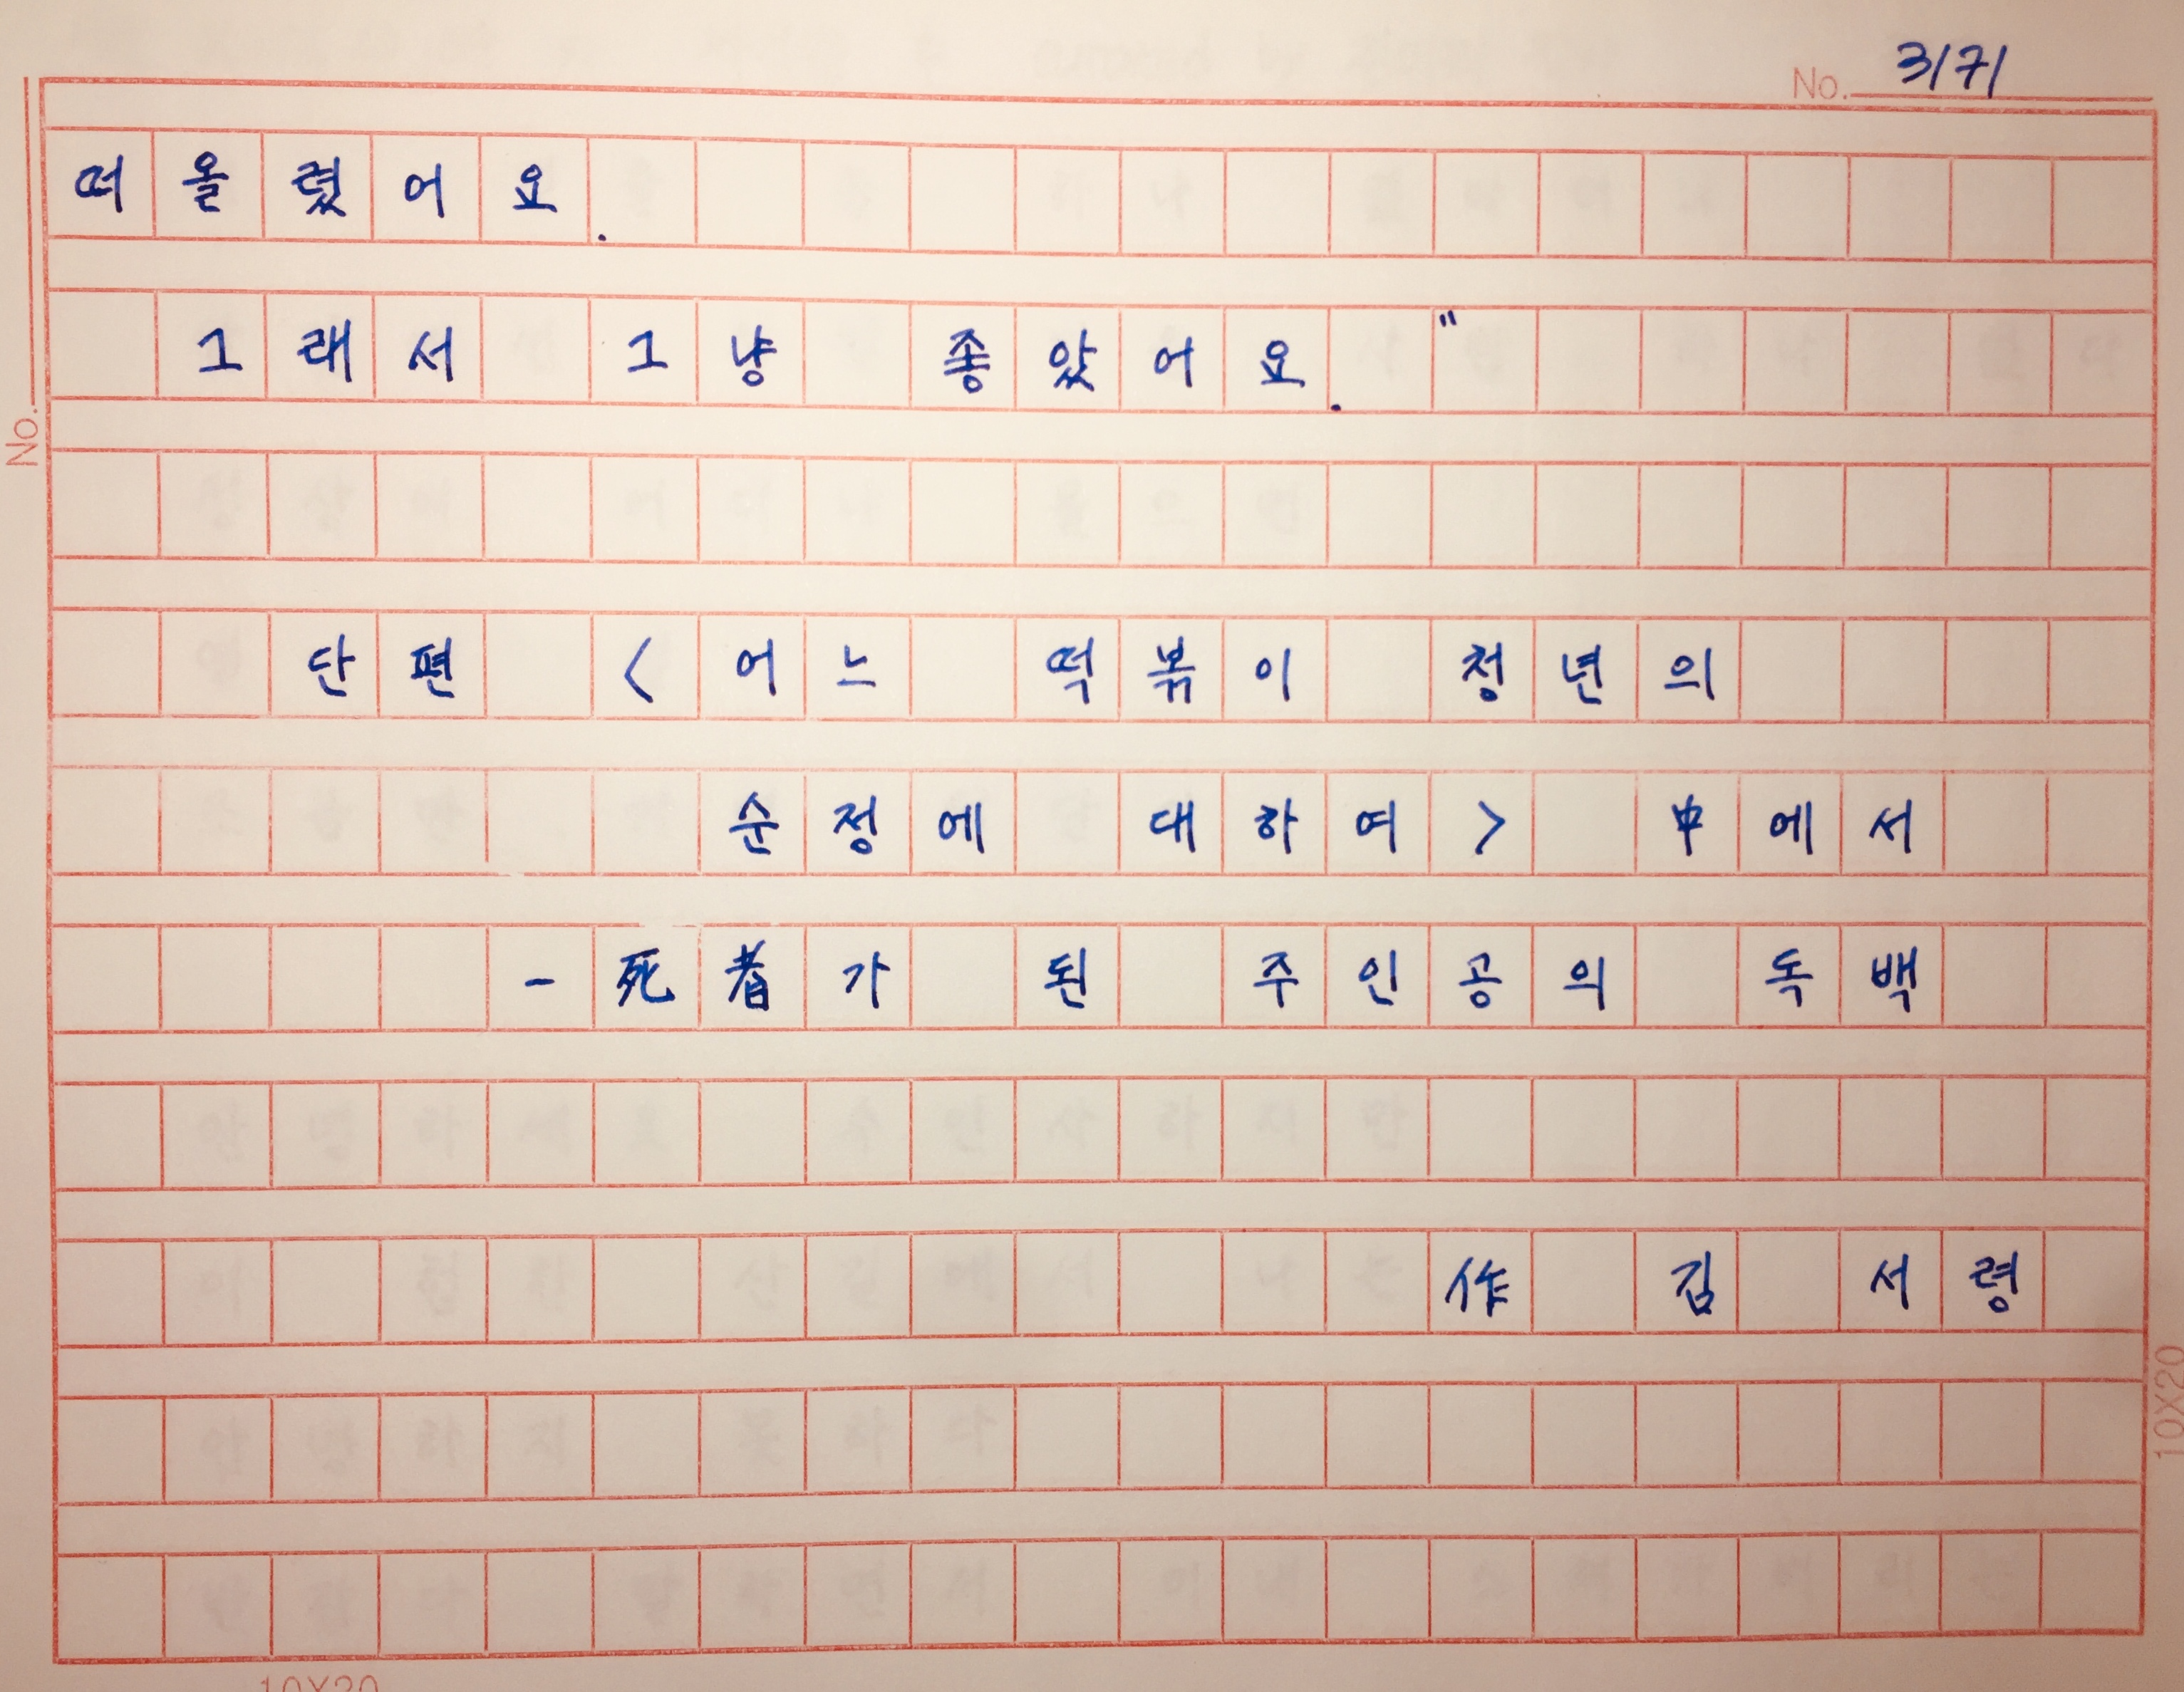 No. 3/7/
떠올렸어요.
그래서 그냥 좋았어요."
단편 <어느 떡볶이 청년의
순정에 대하여> 中에서
-死者가 된 주인공의 독백
作 김 서령
No.
10X20
10X20